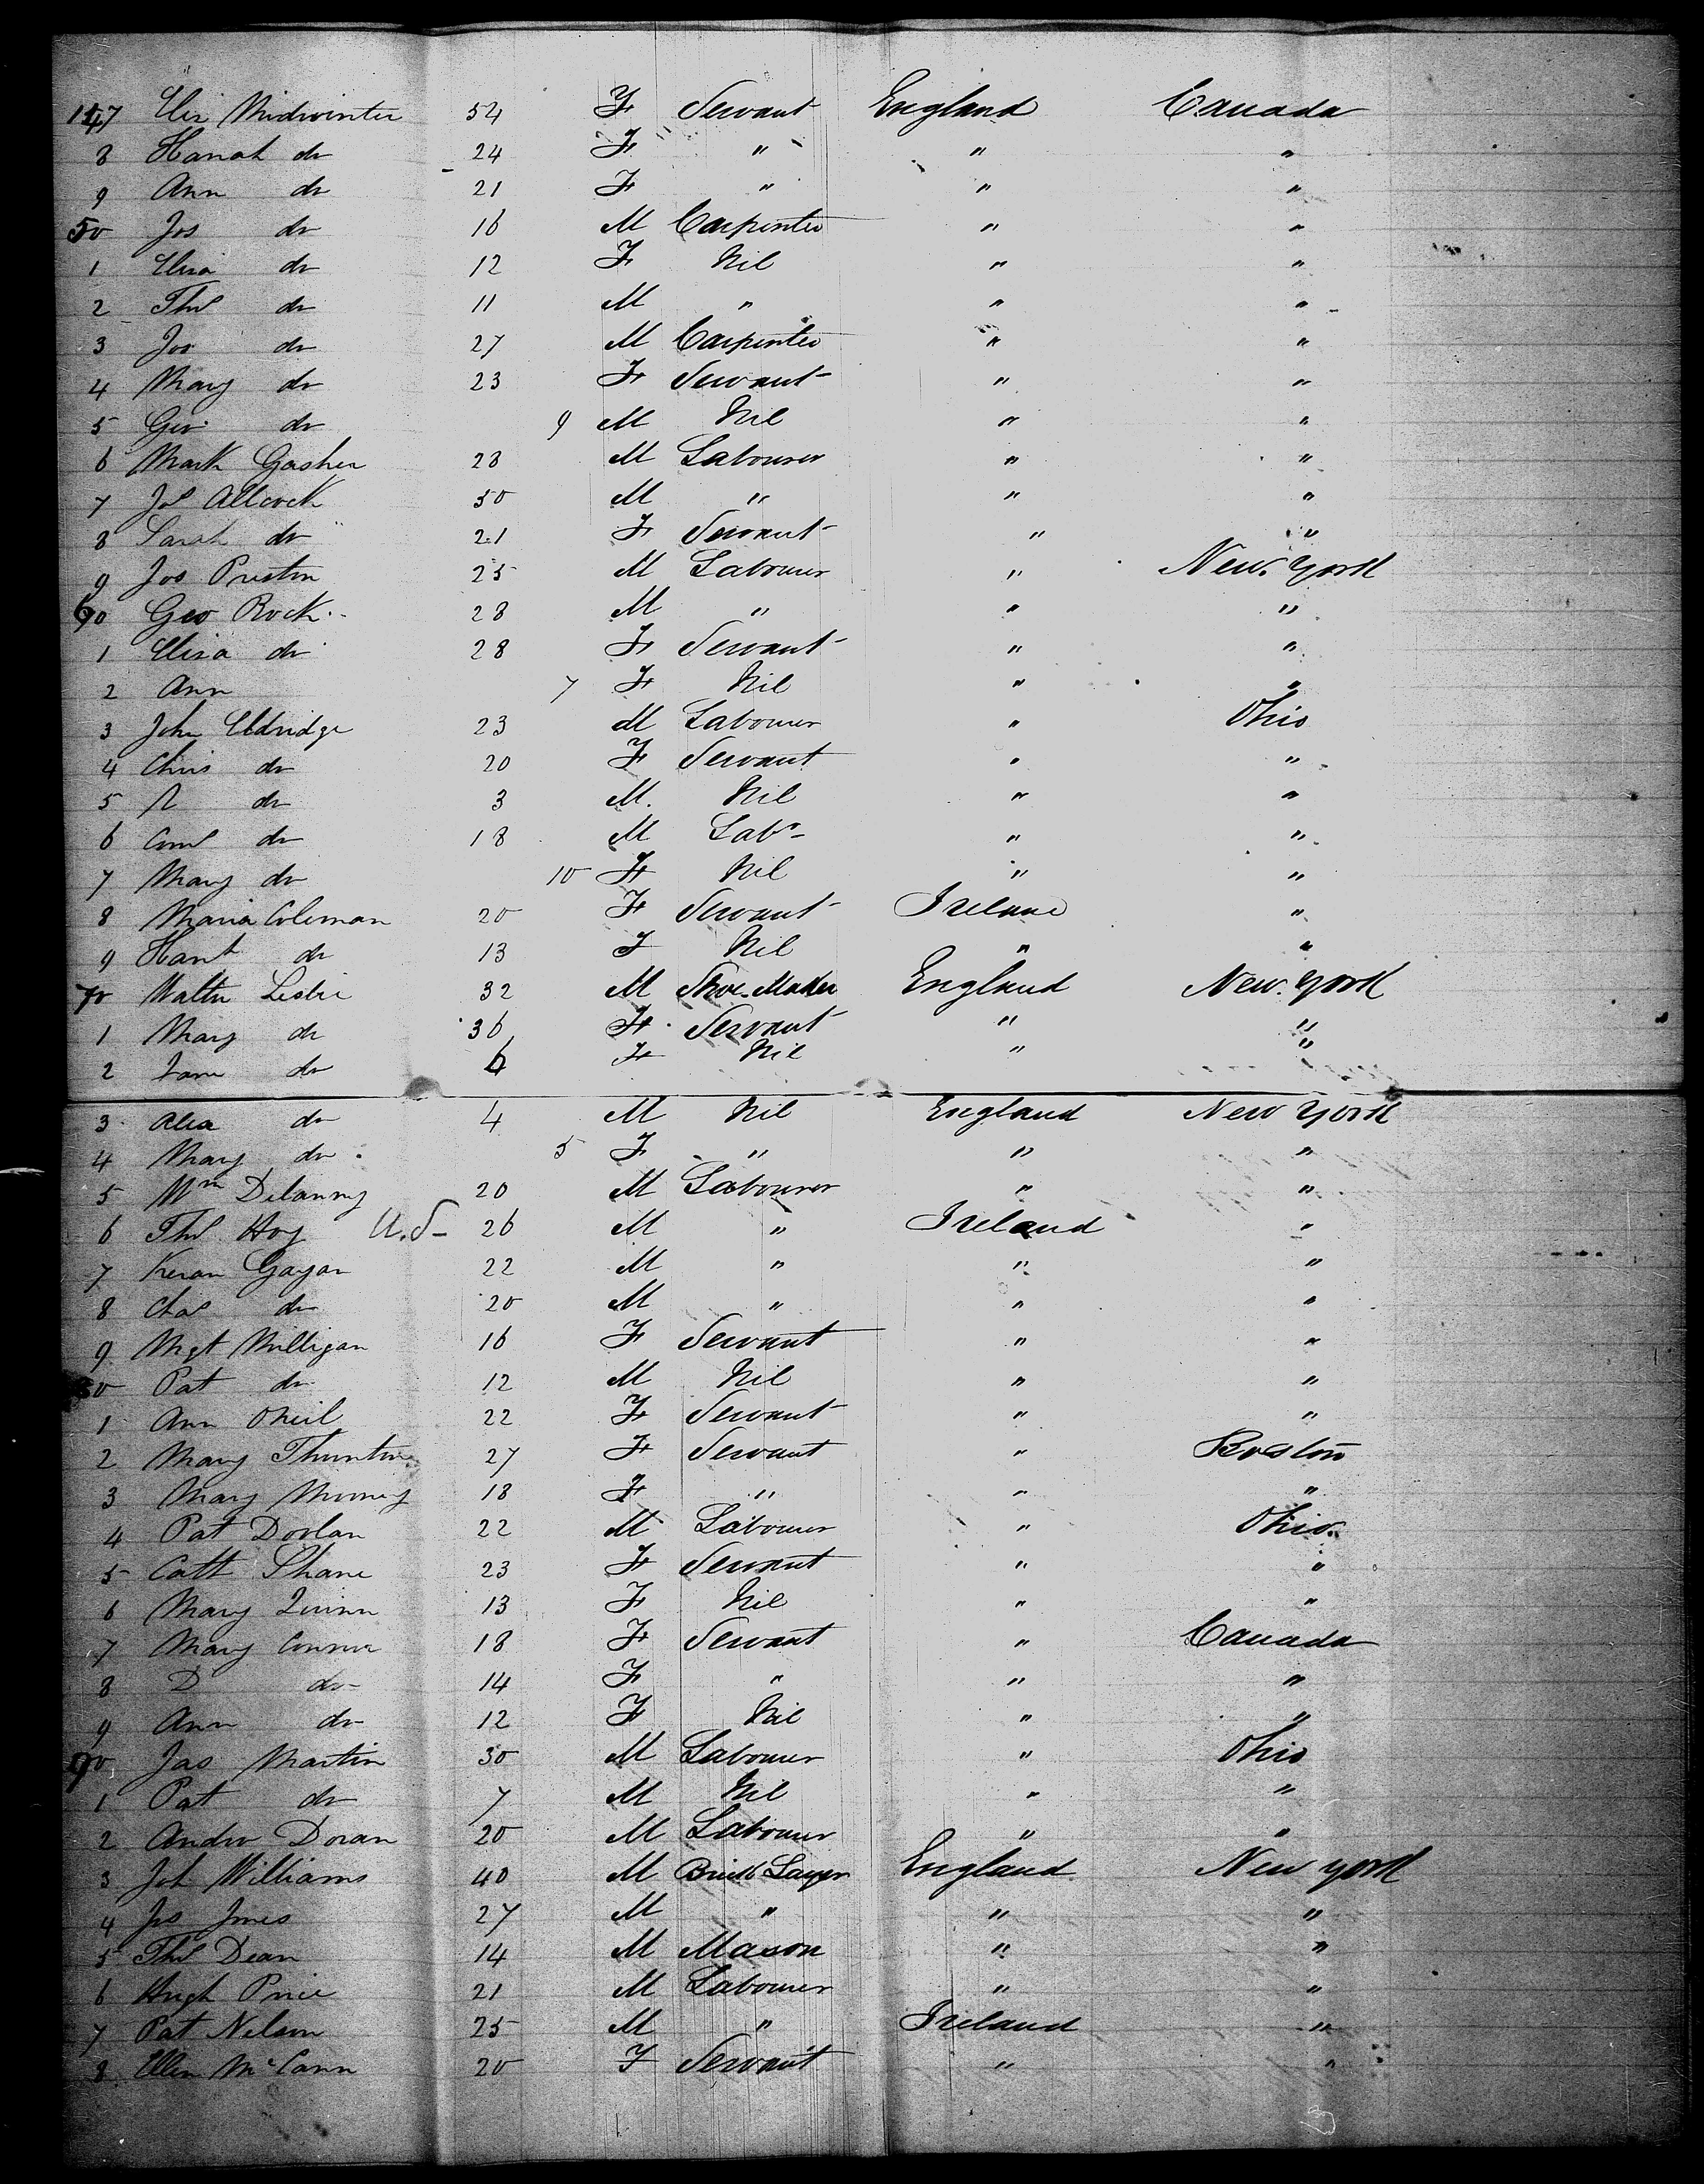 147 Eliz Midwinter 54 F Servant England Canada
8 Hanah do 24 F " " "
9 Ann do 21 F " " "
50 Jos do 16 M Carpenter " "
1 Eliza do 12 F Nil " "
2 Thos do 11 M " " "
3 Jos do 27 M Carpenter " "
4 Mary do 23 F Servant " "
5 Geo do 9 M Nil " "
6 Mark Gosher 28 M Labourer " "
7 Js Allcock 30 M " " "
8 Sarah do 21 F Servant " "
9 Jos Preston 25 M Labourer " New York
60 Geo Rock 28 M " " "
1 Eliza do 28 F Servant " "
2 Ann 7 F Nil " "
3 John Eldridge 23 M Labourer " Ohio
4 Chris do 20 F Servant " "
5 do 3 M Nil " "
6 do 18 M Labr " "
7 Mary do 10 F Nil " "
8 Maria Coleman 20 F Servant Ireland "
9 Hant do 13 F Nil " "
70 Walter Leslie 32 M Shoe Maker England New York
1 Mary do 36 F Servant " "
2 Jane do 6 F Nil " "
3 Alex do 4 M Nil England New York
4 Mary do 5 F " " "
5 Wm Delanny 20 M Labourer " "
6 Thos Hoy U.S- 26 M " Ireland "
7 Keran Gayan 22 M " " "
8 Chas do 20 M " " "
9 Mgt Milligan 16 F Servant " "
80 Pat do 12 M Nil " "
1 Ann ONeil 22 F Servant " "
2 Mary Thunton 27 F Servant " Boston
3 Mary Murney 18 F " " "
4 Pat Doolan 22 M Labourer " Ohio
5 Cath Shane 23 F Servant " "
6 Mary Quinn 13 F Nil " "
7 Mary Connor 18 F Servant " Canada
8 D do 14 F " " "
9 Ann do 12 F Nil " "
90 Jas Martin 30 M Labourer " Ohio
1 Pat do 7 M Nil " "
2 Andw Doran 20 M Labourer " "
3 Joh Williams 40 M Brick Layer England New York
4 Jos Jones 27 M " " "
5 Thos Dean 14 M Mason " "
6 Hugh Price 21 M Labourer " "
7 Pat Nelson 25 M " Ireland "
8 Ellen McCann 20 F Servant " "